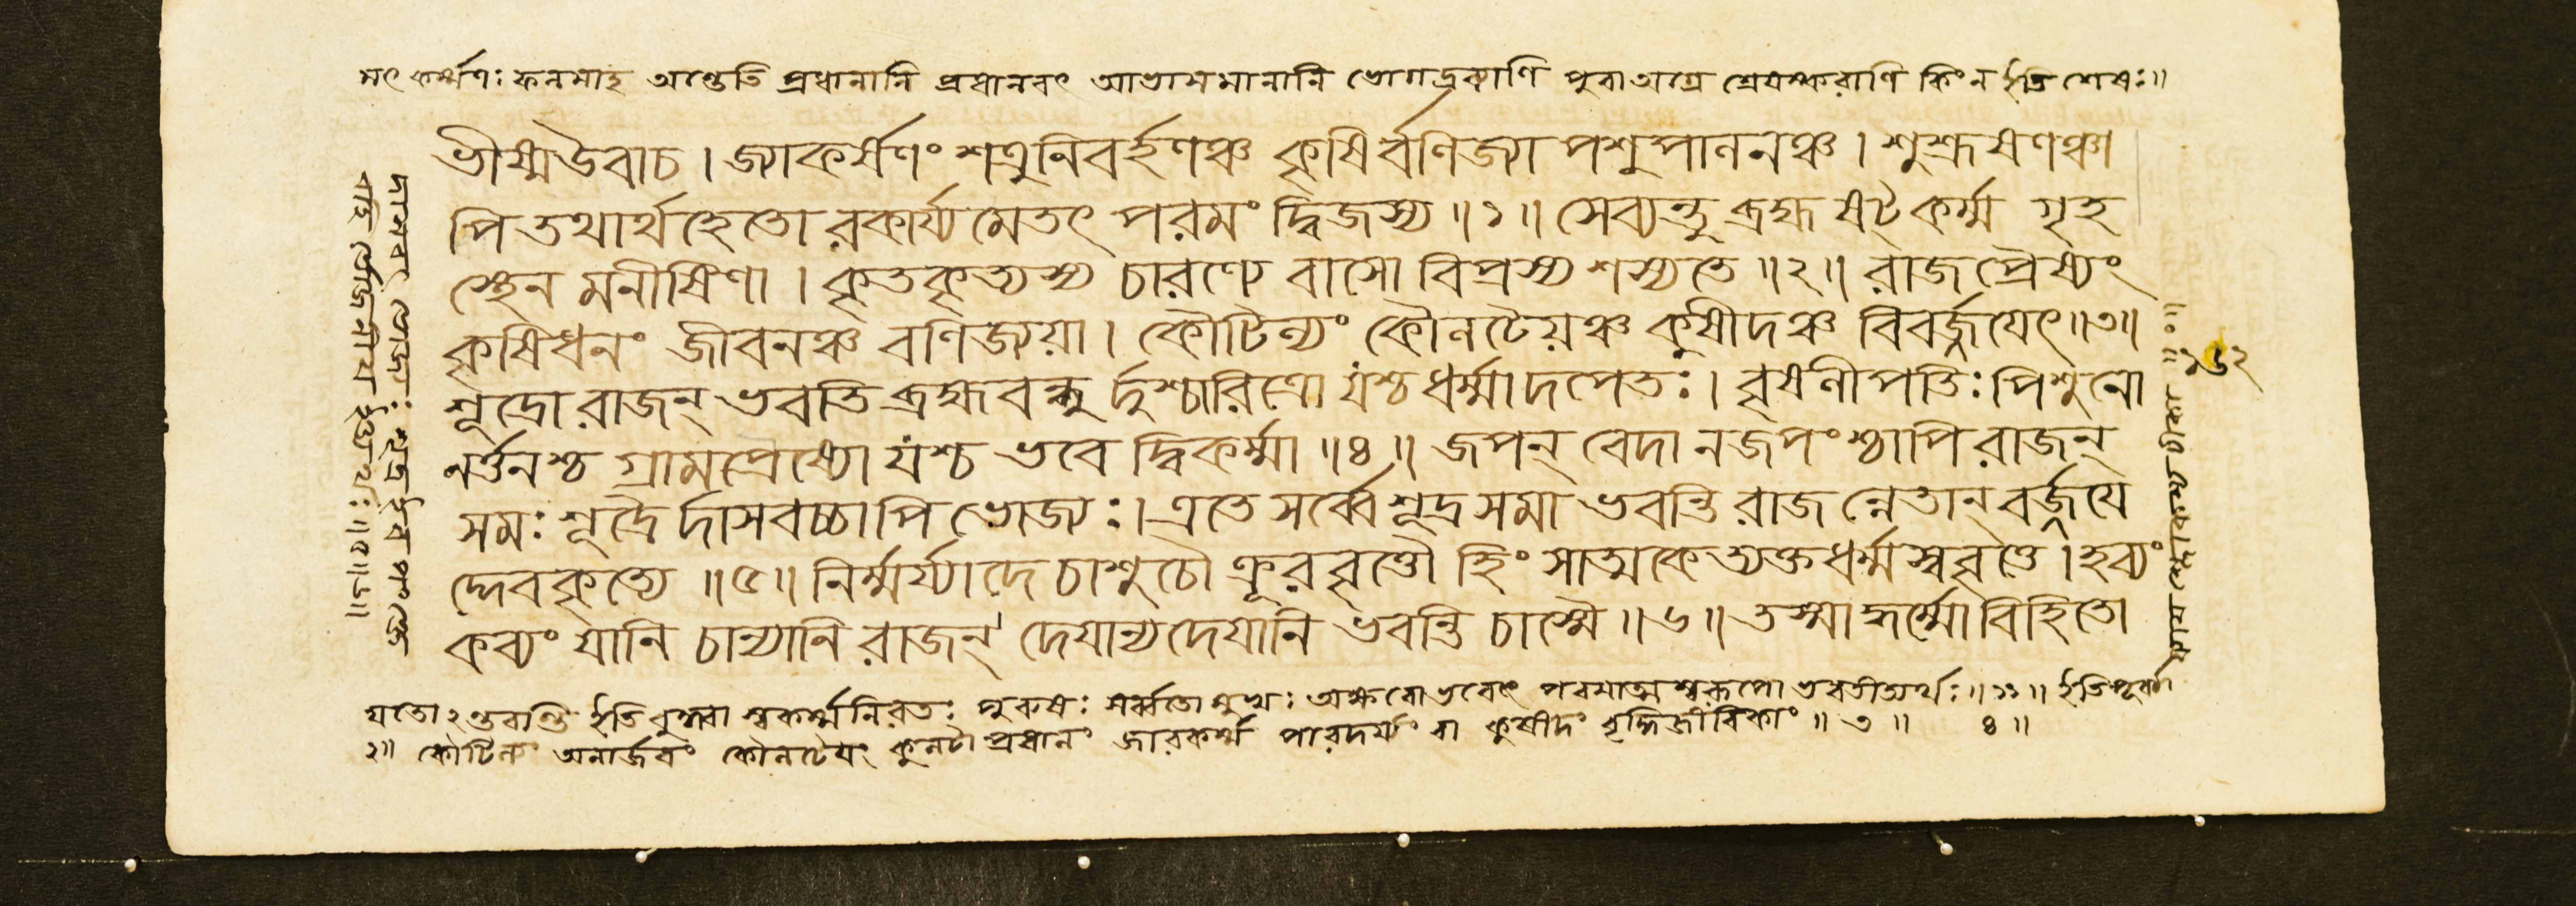 সৎকর্ম্মণঃ ফলমাহ অন্তেতি প্রধানানি প্রধানবৎ আভাসমানানি ভোগদ্রব্যাণি পুরা অগ্রে শ্রেয়স্করাণি কিং ন ইতি শেষঃ॥
ভীষ্মউবাচ । জ্যাকর্ষণং শত্রুনিবর্হণঞ্চ কৃষির্বণিজ্যা পশুপালনঞ্চ । শুশ্রূষণঞ্চা
পি তথার্থহেতো রকার্য্যমেতৎ পরমং দ্বিজস্য ॥১॥ সেব্যন্তু ব্রহ্মষট্কর্ম্ম গৃহ
স্থেন মনীষিণা । কৃতকৃত্যস্য চারণ্যে বাসো বিপ্রস্য শস্যতে ॥২॥ রাজপ্রৈষ্যং
কৃষিধনং জীবনঞ্চ বণিজ্যয়া । কৌটিল্যং কৌলটেয়ঞ্চ কুষীদঞ্চ বিবর্জ্জয়েৎ॥৩॥
শূদ্রো রাজন্ ভবতি ব্রহ্মবন্ধু র্দুশ্চারিত্রো যশ্চ ধর্ম্মাদপেতঃ । বৃষলীপতিঃ পিশুনো
নর্ত্তনশ্চ গ্রামপ্রৈষ্যো যশ্চ ভবে দ্বিকর্ম্মা ॥৪॥ জপন্ বেদানজপংশ্চাপি রাজন্
সমঃ শূদ্রৈ র্দাসবচ্চাপি ভোজ্যঃ । এতে সর্ব্বে শূদ্রসমা ভবন্তি রাজন্নেতান্ বর্জ্জয়ে
দ্দেবকৃত্যে ॥৫॥ নির্ম্মর্য্যাদে চাশুচৌ ক্রূরবৃত্তৌ হিংসাত্মকে ত্যক্তধর্ম্মস্ববৃত্তে । হব্যং
কব্যং যানি চান্যানি রাজন্ দেয়ান্যদেয়ানি ভবন্তি চাস্মৈ ॥৬॥ তস্মাদ্ধর্ম্মো বিহিতো
ইতি স্বকর্ম্মনিরতঃ পুরুষঃ সর্ব্বতোমুখঃ পরমাত্মস্বরূপো ভবতীত্যর্থঃ॥১১॥ ইতি
২॥ কৌটিল্যং অনার্জবং কৌলটেয়ং কুলটাপ্রধানং জারকর্ম্ম পারদার্য্যং বা কুষীদং বৃদ্ধিজীবিকাং ॥৩॥ ৪॥